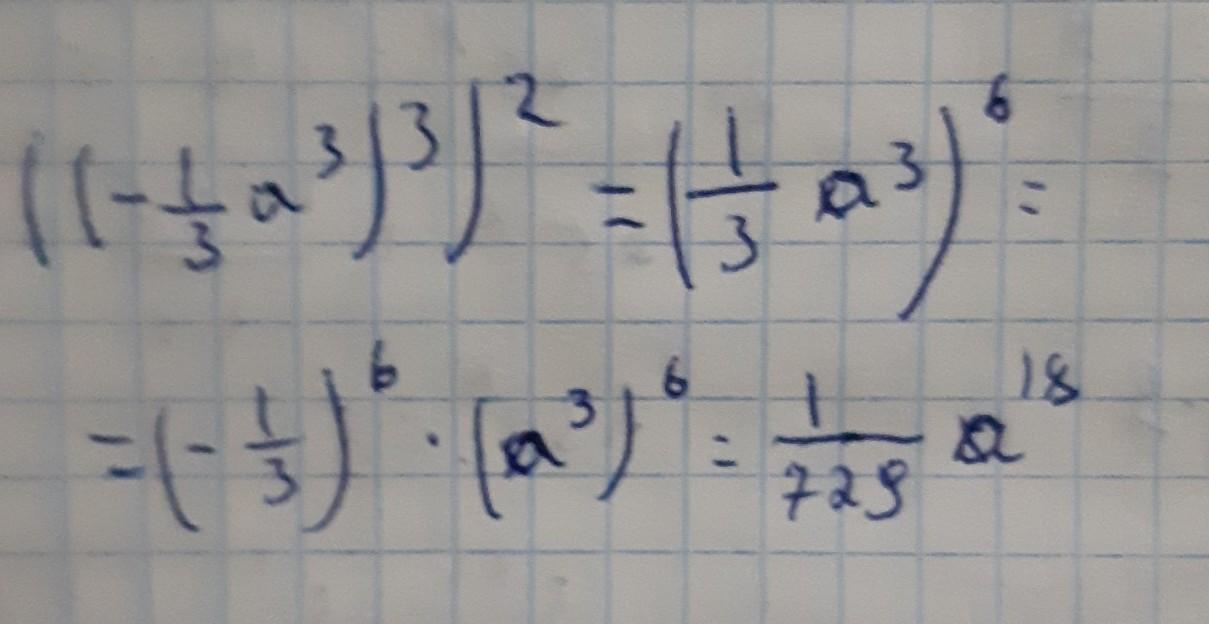 ((-1/3 a³)³)² = (1/3 a³)⁶ =
= (-1/3)⁶ · (a³)⁶ = 1/729 a¹⁸